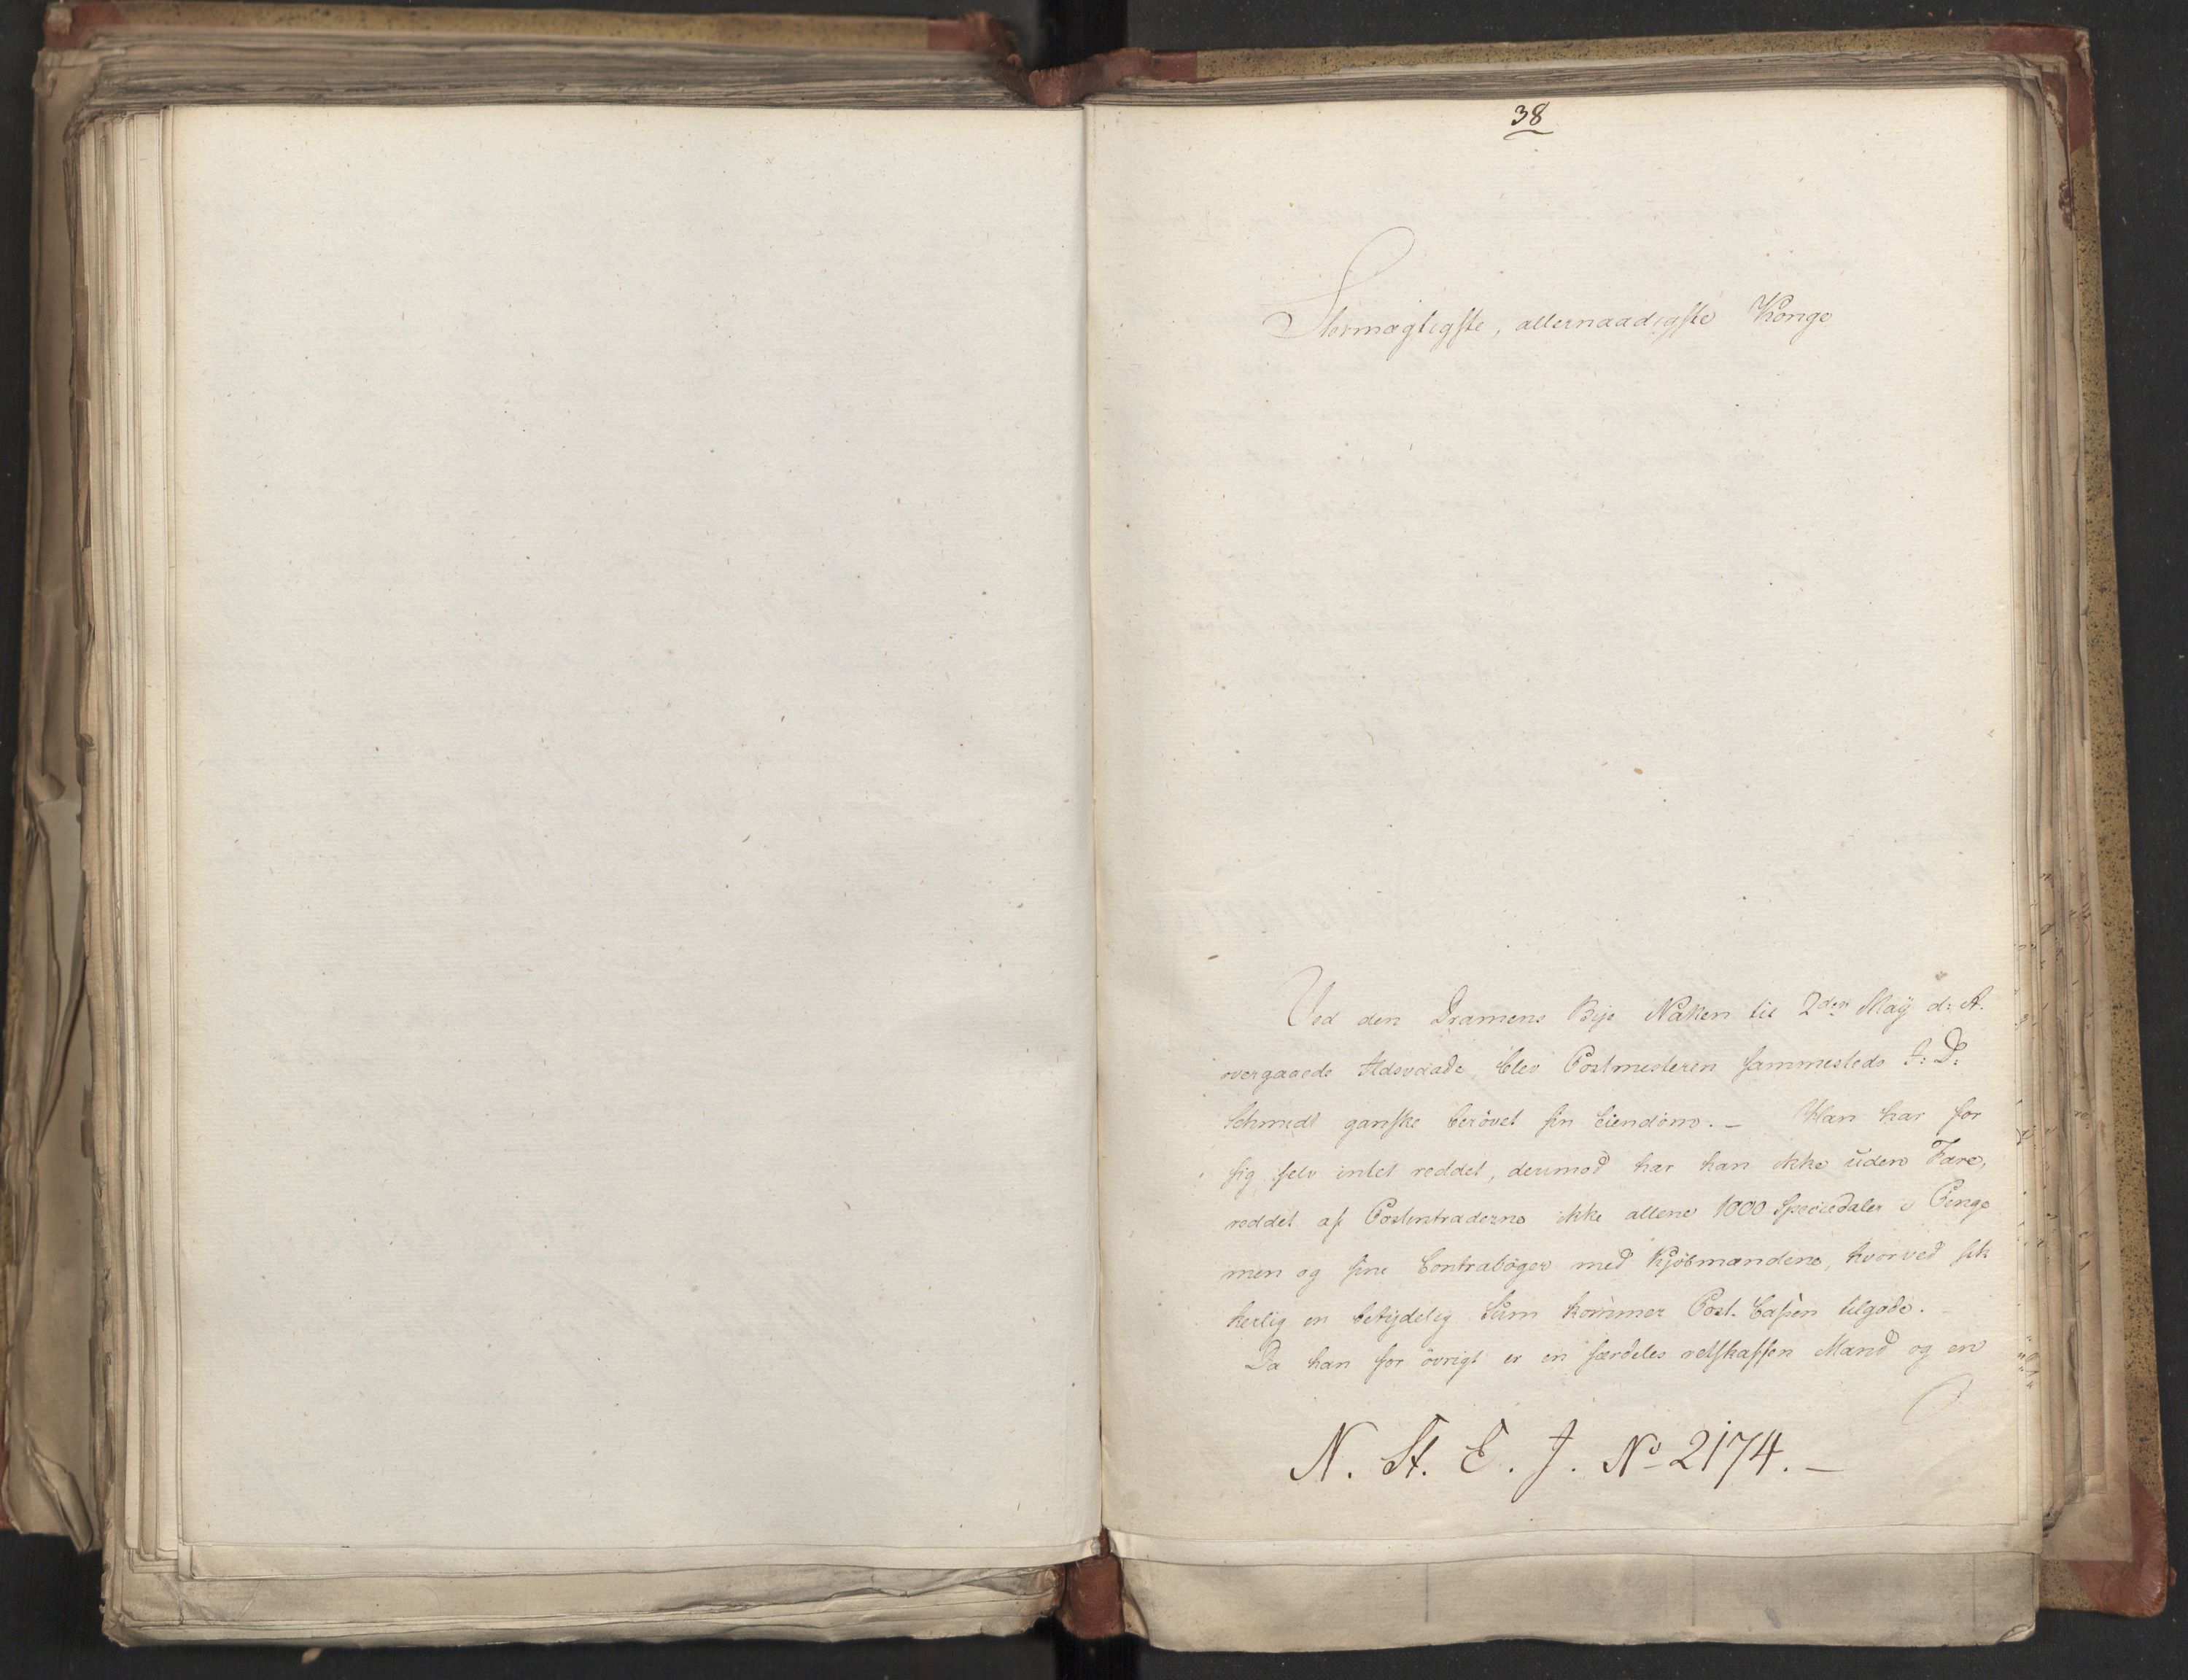 38
Stormægtigste, allernaadigste Konge
Ved den Dramens Bye Natten til 2den Maÿ d: A.
overgaaede Ildsvaade blev Postmesteren sammesteds I: D:
Schmidt ganske berövet sin Eiendom. – Han har for
sig selv intet reddet, derimod har han ikke uden Fare,
reddet af Postintraderne ikke allene 1000 Speciedaler i Penge
men og sine Contraböger med Kjöbmændene, hvorved sik
kerlig en betÿdelig Sum kommer Post-Cassen tilgode.
Da han for övrigt er en særdeles retskaffen Mand og en
N. St. E. J. No 2174. –